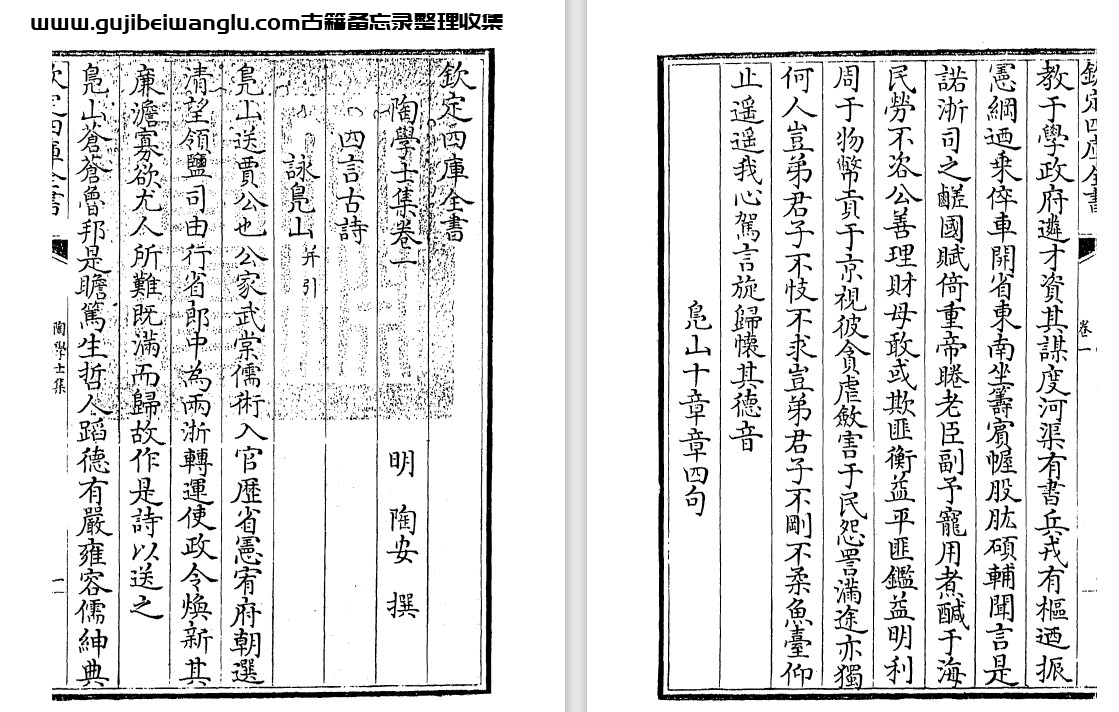 www.gujibeiwanglu.com古籍备忘录整理收集
欽定四庫全書
陶學士集卷一
明 陶安 撰
四言古詩
詠鳬山并引
鳬山送賈公也公家武棠儒術入官歴省憲宥府朝選
清望領鹽司由行省郎中為兩浙轉運使政令煥新其
廉澹寡欲尤人所難既滿而歸故作是詩以送之
鳬山蒼蒼魯邦是瞻篤生哲人蹈德有嚴雍容儒紳典
欽定四庫全書
陶學士集
一
欽定四庫全書
卷一
教于學政府遴才資其謀度河渠有書兵戎有樞迺振
憲綱迺乘倅車開省東南坐籌賓幄股肱碩輔聞言是
諾浙司之鹺國賦倚重帝睠老臣副予寵用煮鹹于海
民勞不咨公善理財母敢或欺匪衡益平匪鑑益明利
周于物幣貢于京視彼貪虐斂害于民怨詈滿途亦獨
何人豈弟君子不忮不求豈弟君子不剛不柔魚臺仰
止遥遥我心駕言旋歸懷其德音
鳬山十章章四句